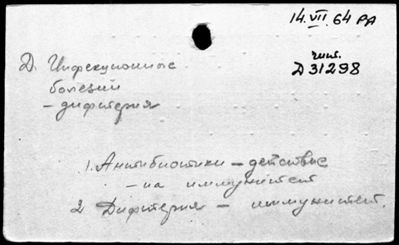 14.VII.64 РА
чит.
Д 31298
Д. Инфекционные
болезни
– дифтерия
1. Антибиотики – действие
– на иммунитет
2. Дифтерия – иммунитет.